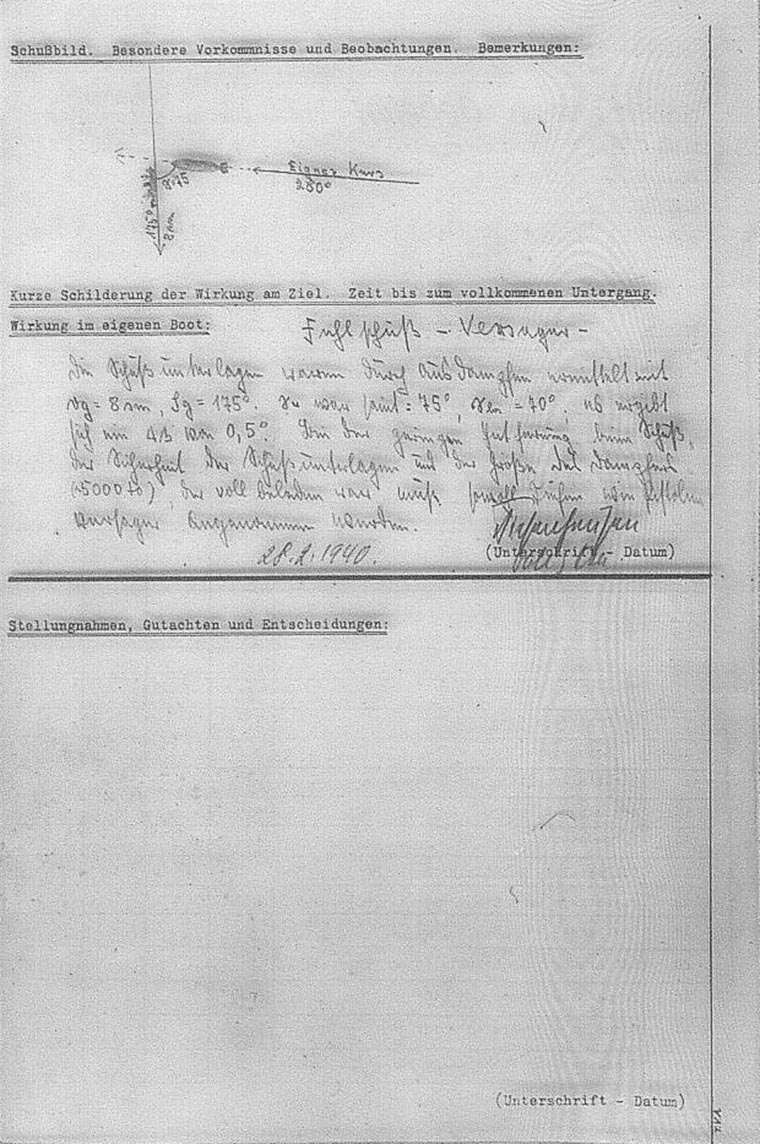 Schußbild. Besondere Vorkommnisse und Beobachtungen. Bemerkungen:
Eigner Kurs
280°
γ=75
175°
8 sm
Kurze Schilderung der Wirkung am Ziel. Zeit bis zum vollkommenen Untergang.
Wirkung im eigenen Boot:
Fehlschuß – Versager –
Die Schußunterlagen waren durch Ausdampfen ermittelt mit
vg = 8 sm, Sg = 175°. war somit = 75°, = 70°. es ergibt
sich ein von 0,5°. Bei der geringen Entfernung beim Schuß,
der Sicherheit der Schußunterlagen und der Größe des Dampfers
(5000 to), der voll beladen war muß ein Pistolen
versager angenommen werden.
28.2.1940.
(Unterschrift - Datum)
Stellungnahmen, Gutachten und Entscheidungen:
(Unterschrift - Datum)